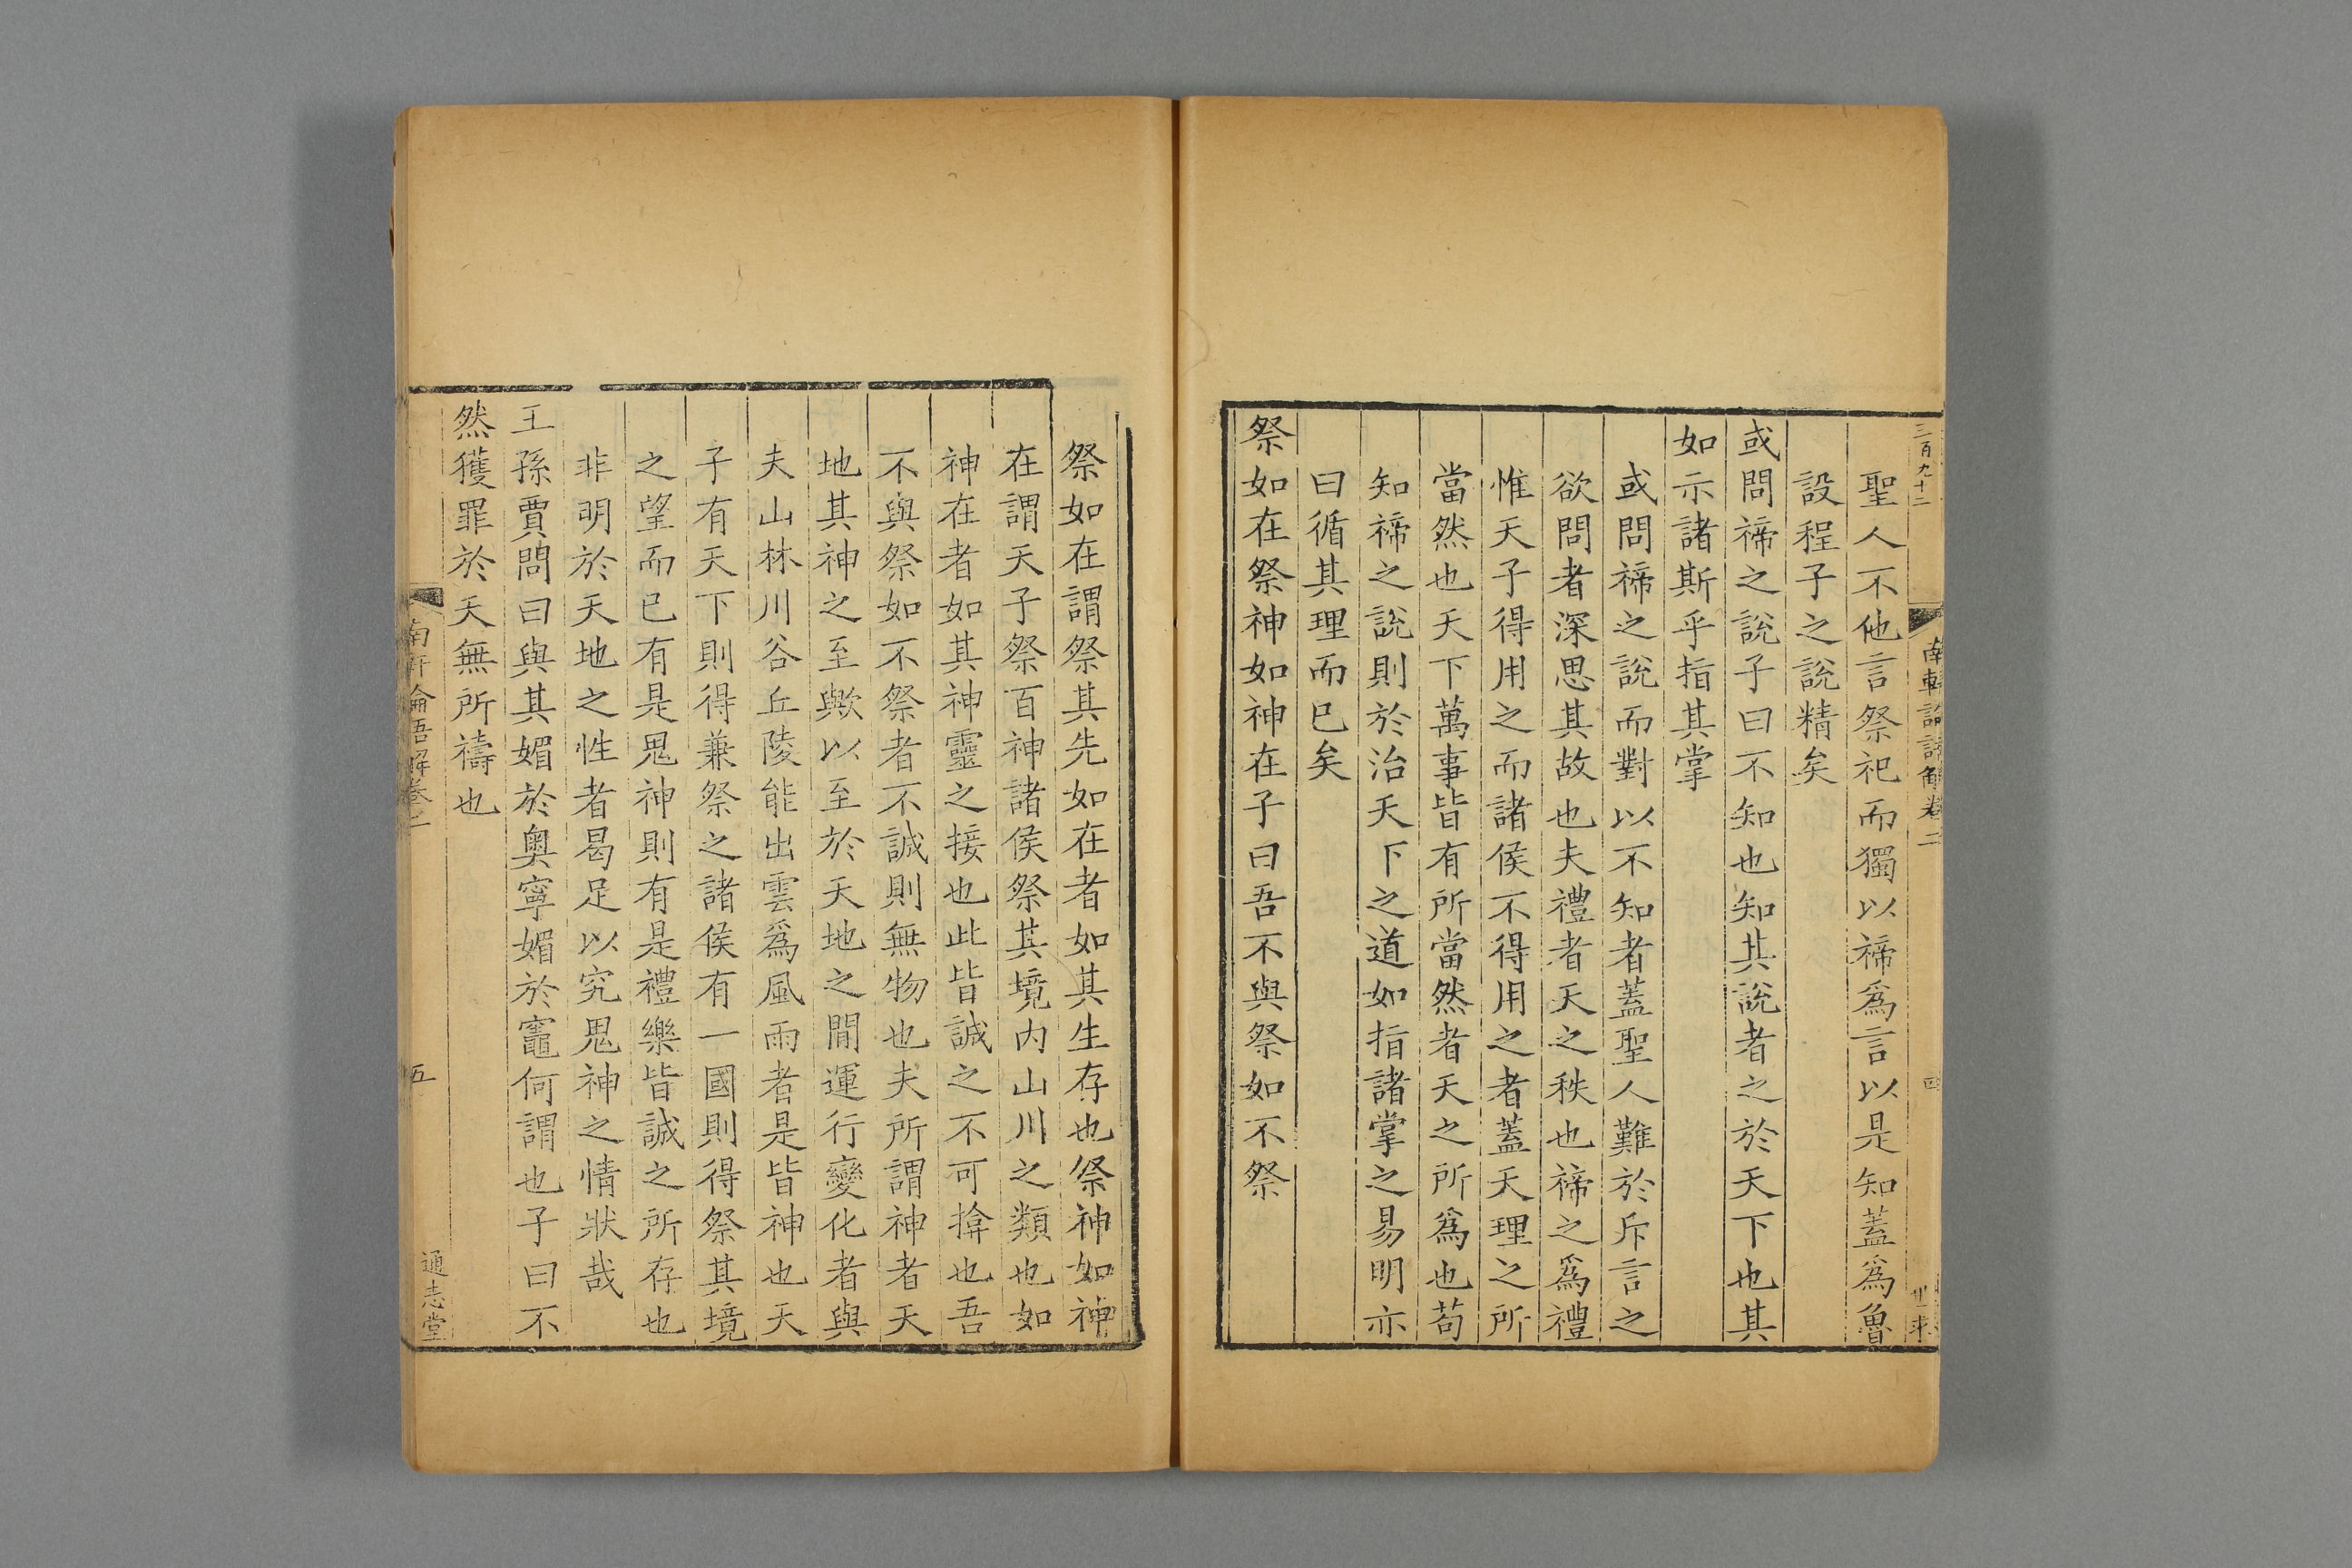 三百九十二
南軒論語解卷二
四
聖人不他言祭祀而獨以禘爲言以是知蓋爲魯
設程子之說精矣
或問禘之說子曰不知也知其說者之於天下也其
如示諸斯乎指其掌
或問禘之說而對以不知者蓋聖人難於斥言之
欲問者深思其故也夫禮者天之秩也禘之爲禮
惟天子得用之而諸侯不得用之者蓋天理之所
當然也天下萬事皆有所當然者天之所爲也苟
知禘之說則於治天下之道如指諸掌之易明亦
曰循其理而已矣
祭如在祭神如神在子曰吾不與祭如不祭
祭如在謂祭其先如在者如其生存也祭神如神
在謂天子祭百神諸侯祭其境內山川之類也如
神在者如其神靈之接也此皆誠之不可揜也吾
不與祭如不祭者不誠則無物也夫所謂神者天
地其神之至歟以至於天地之間運行變化者與
夫山林川谷丘陵能出雲爲風雨者是皆神也天
子有天下則得兼祭之諸侯有一國則得祭其境
之望而已有是鬼神則有是禮樂皆誠之所存也
非明於天地之性者曷足以究鬼神之情狀哉
王孫賈問曰與其媚於奧寧媚於竈何謂也子曰不
然獲罪於天無所禱也
南軒論語解卷二
五
通志堂